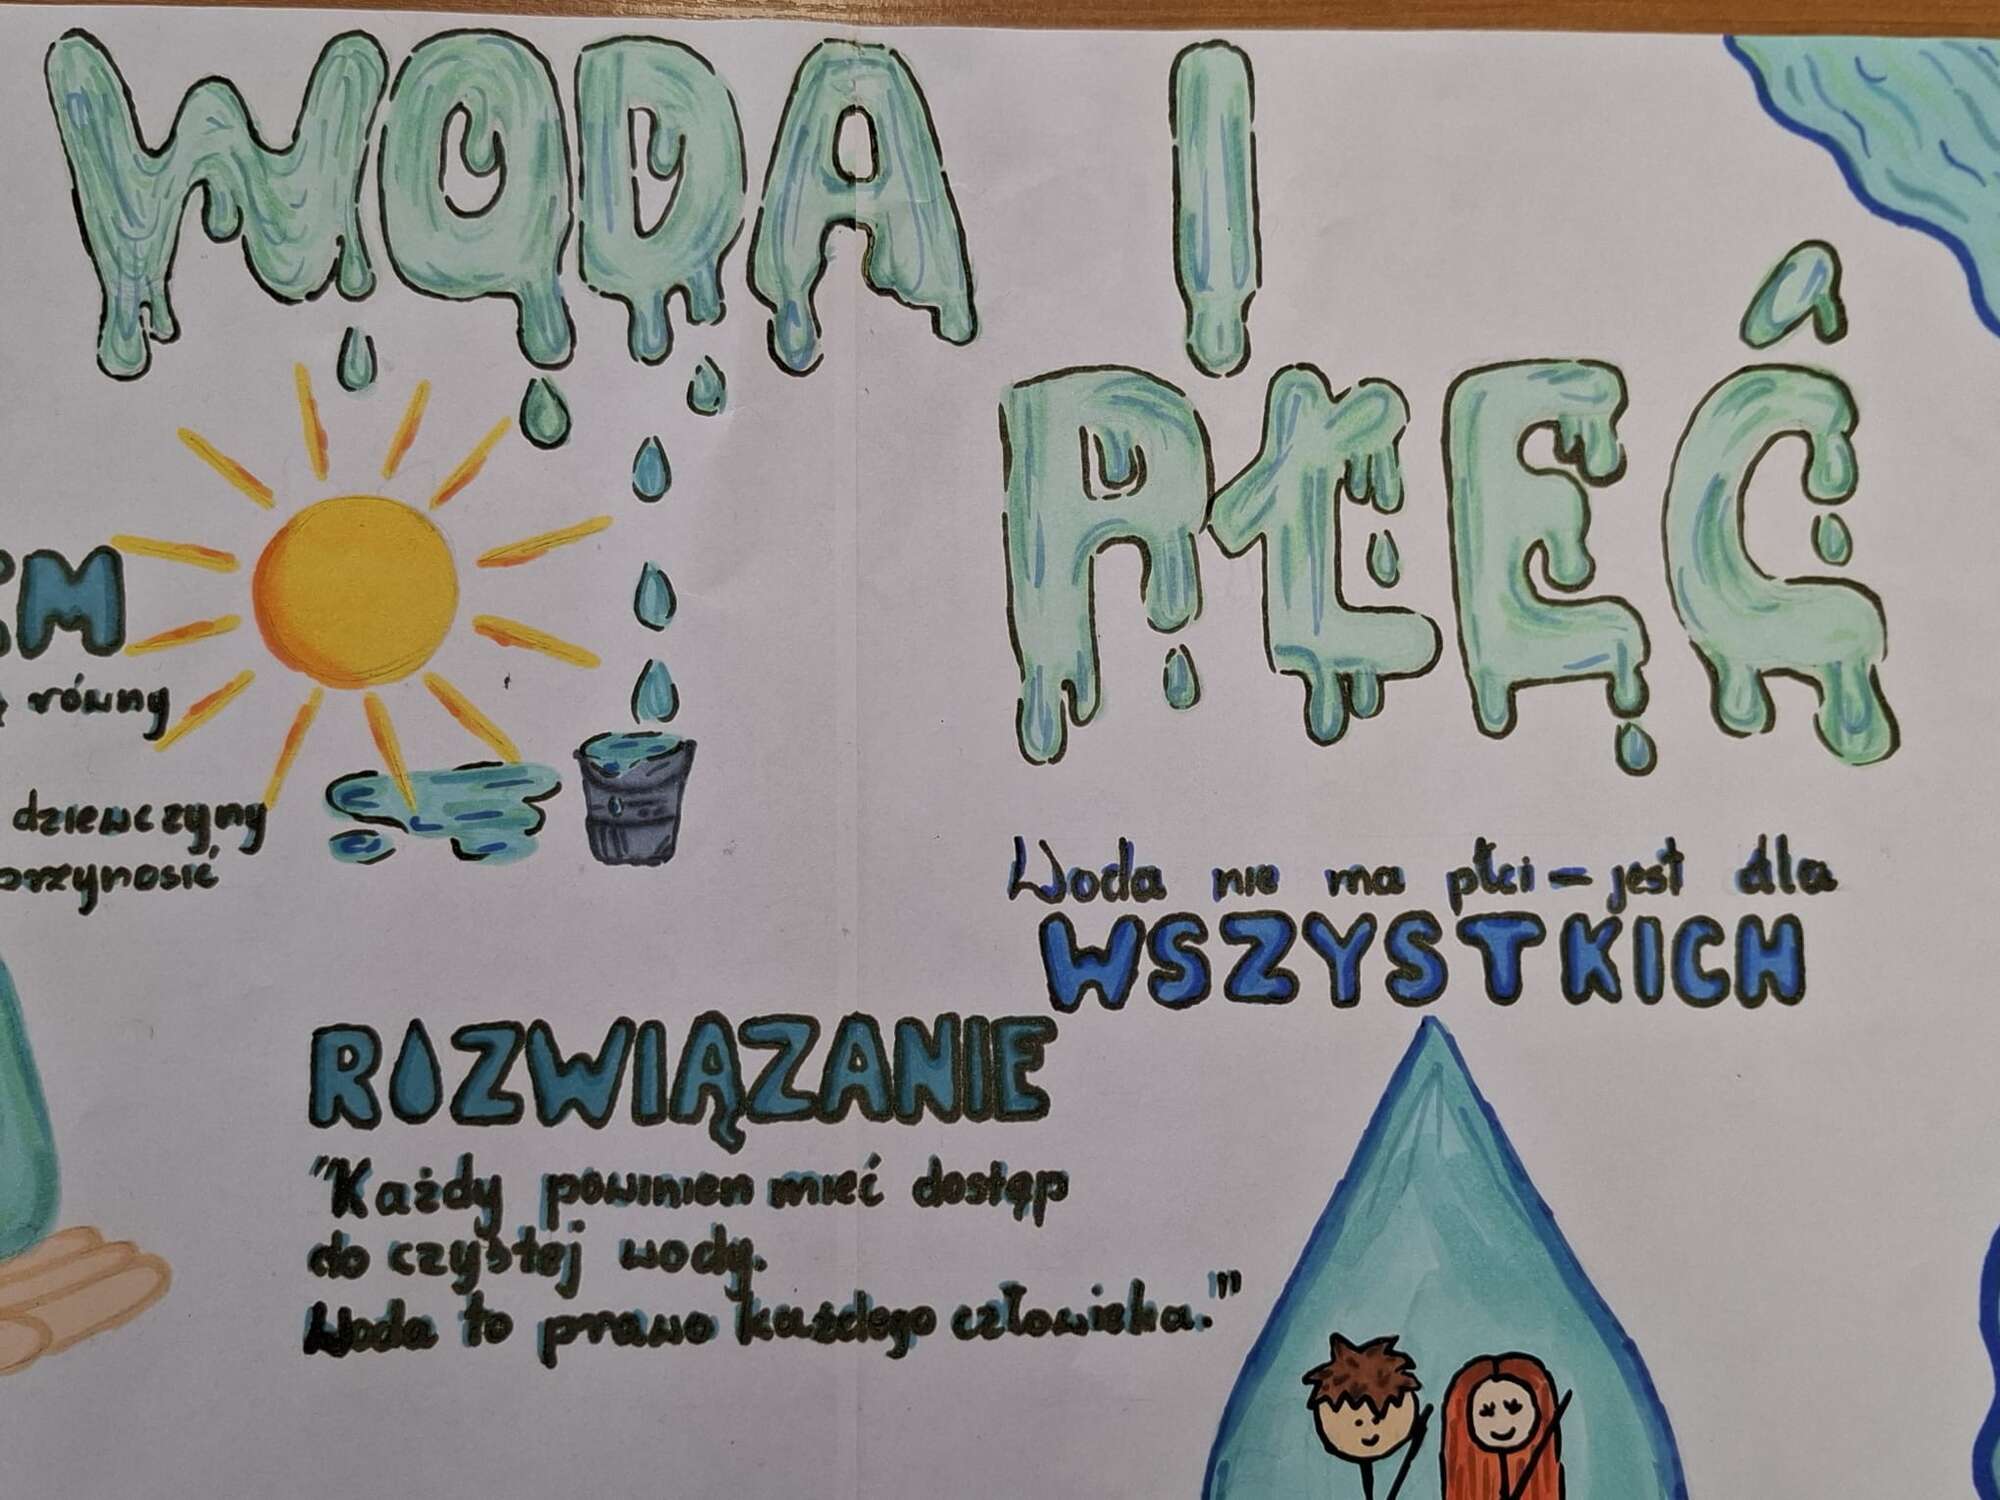 WODA I
PŁEĆ
EM
równy
dziewczyny
przynosić
Woda nie ma płci – jest dla
WSZYSTKICH
ROZWIĄZANIE
"Każdy powinien mieć dostęp
do czystej wody.
Woda to prawo każdego człowieka."